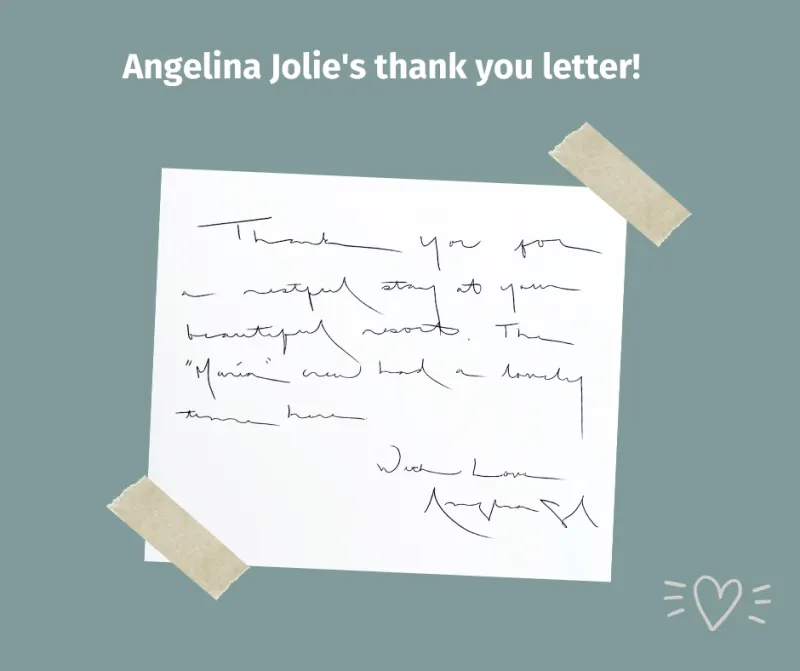 Angelina Jolie's thank you letter!
Thank you for
a restful stay at your
beautiful resort. The
"Maria" crew had a lovely
time here.
With Love